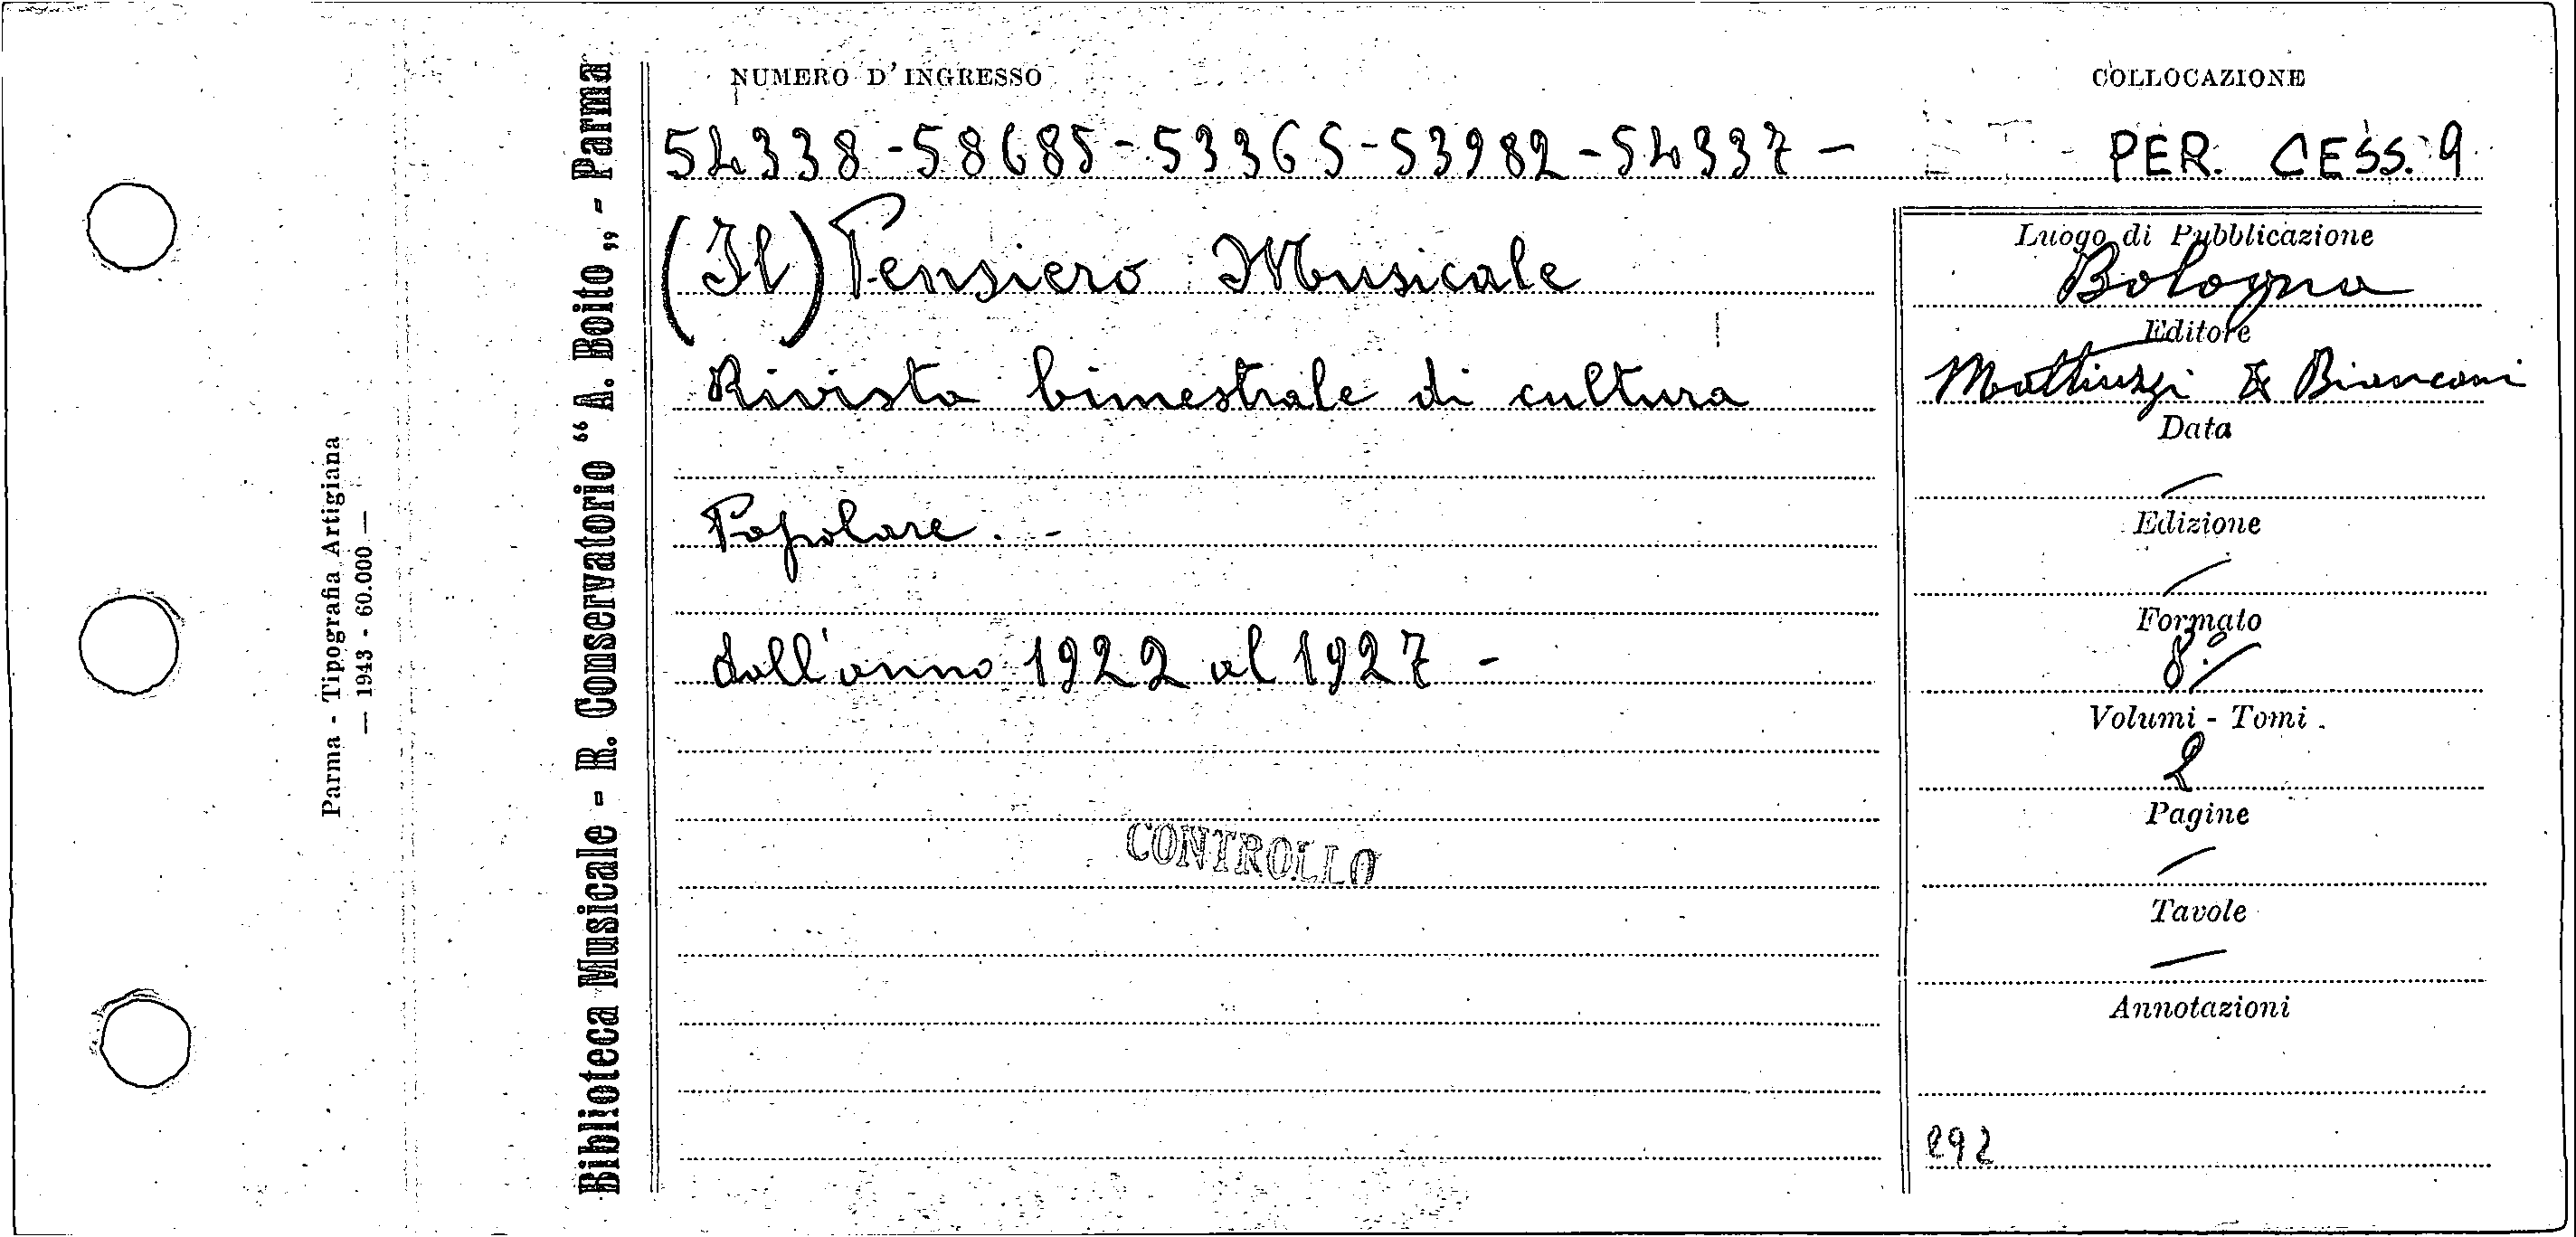 Parma - Tipografia Artigiana
— 1943 - 60.000 —
Biblioteca Musicale - R. Conservatorio “ A. Boito „ - Parma
NUMERO D'INGRESSO
54338-58685-53365-53982-54337-
(Il) Pensiero Musicale
Rivista bimestrale di cultura
Popolare. -
dall'anno 1922 al 1927 -
CONTROLLO
COLLOCAZIONE
PER. CESS. 9
Luogo di Pubblicazione
Bologna
Editore
Mattiuzzi & Bianconi
Data
—
Edizione
—
Formato
8°
Volumi - Tomi
2
Pagine
—
Tavole
—
Annotazioni
292